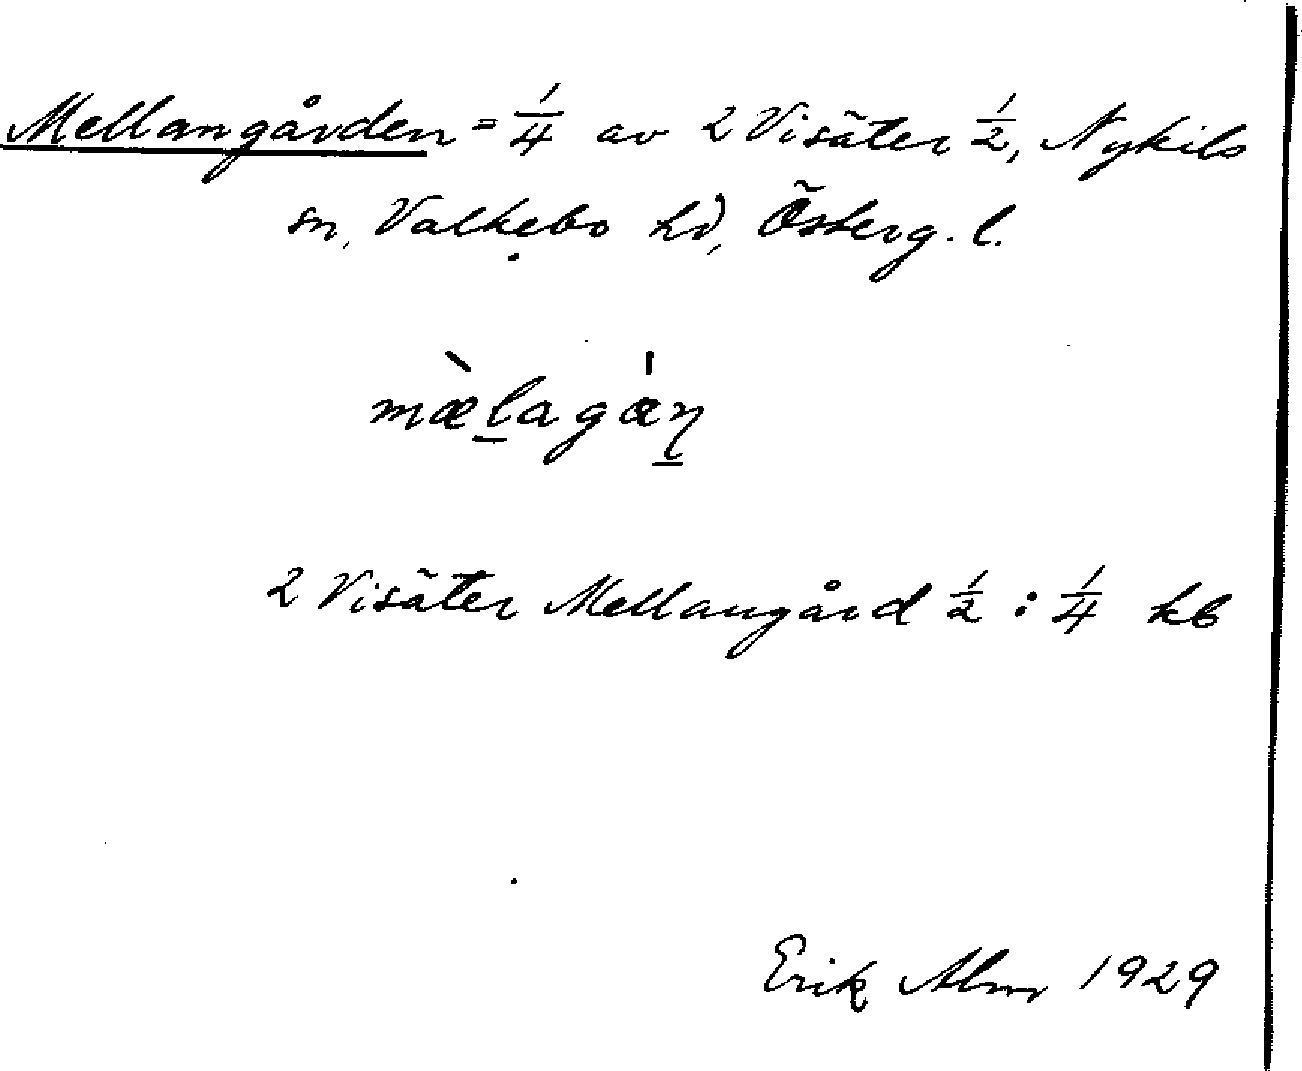 Mellangården = 1/4 av 2 Visäter 1/2, Nykils
sn, Valkebo hd, Österg. l.
mæ̀l̠agáṉ
2 Visäter Mellangård 1/2 : 1/4 kb
Erik Alm 1929